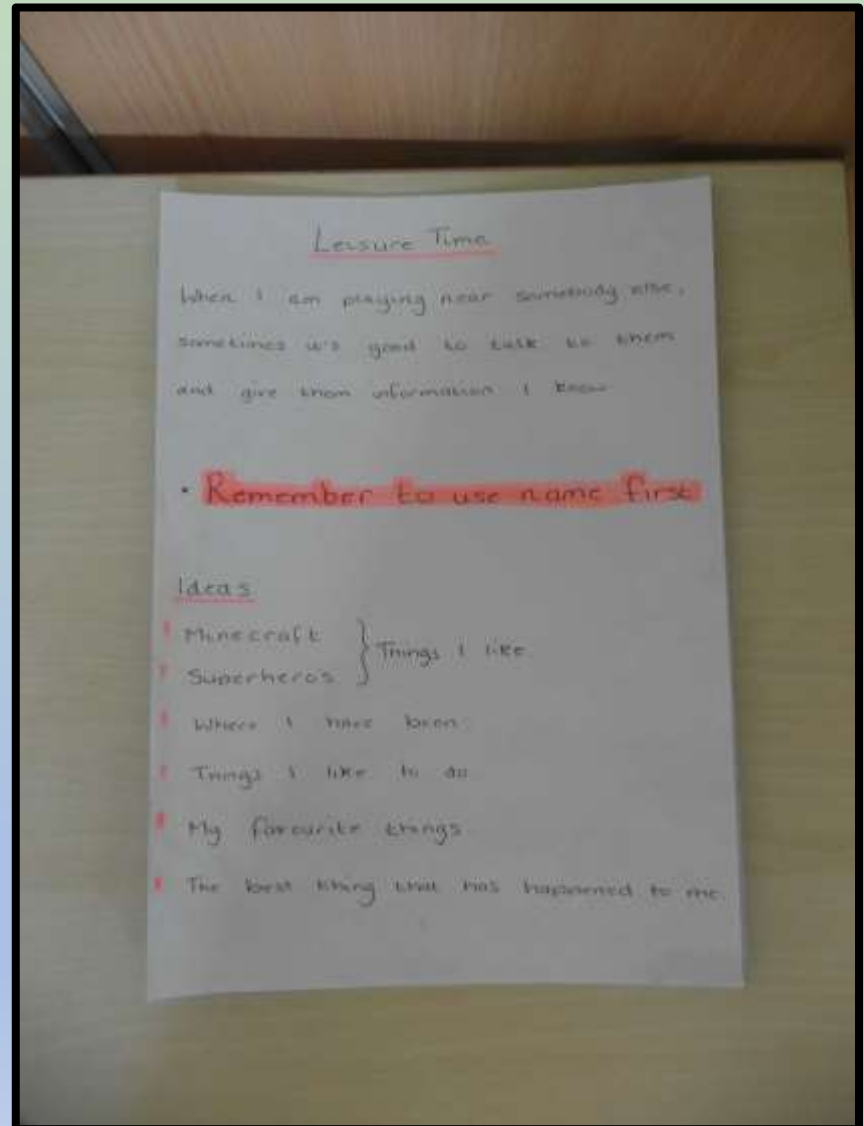 Leisure Time
When I am playing near somebody else,
sometimes it's good to talk to them
and give them information I know
• Remember to use name first
Ideas
Minecraft } Things I like
Superheros
Where I have been
Things I like to do
My favourite things
The best thing that has happened to me.